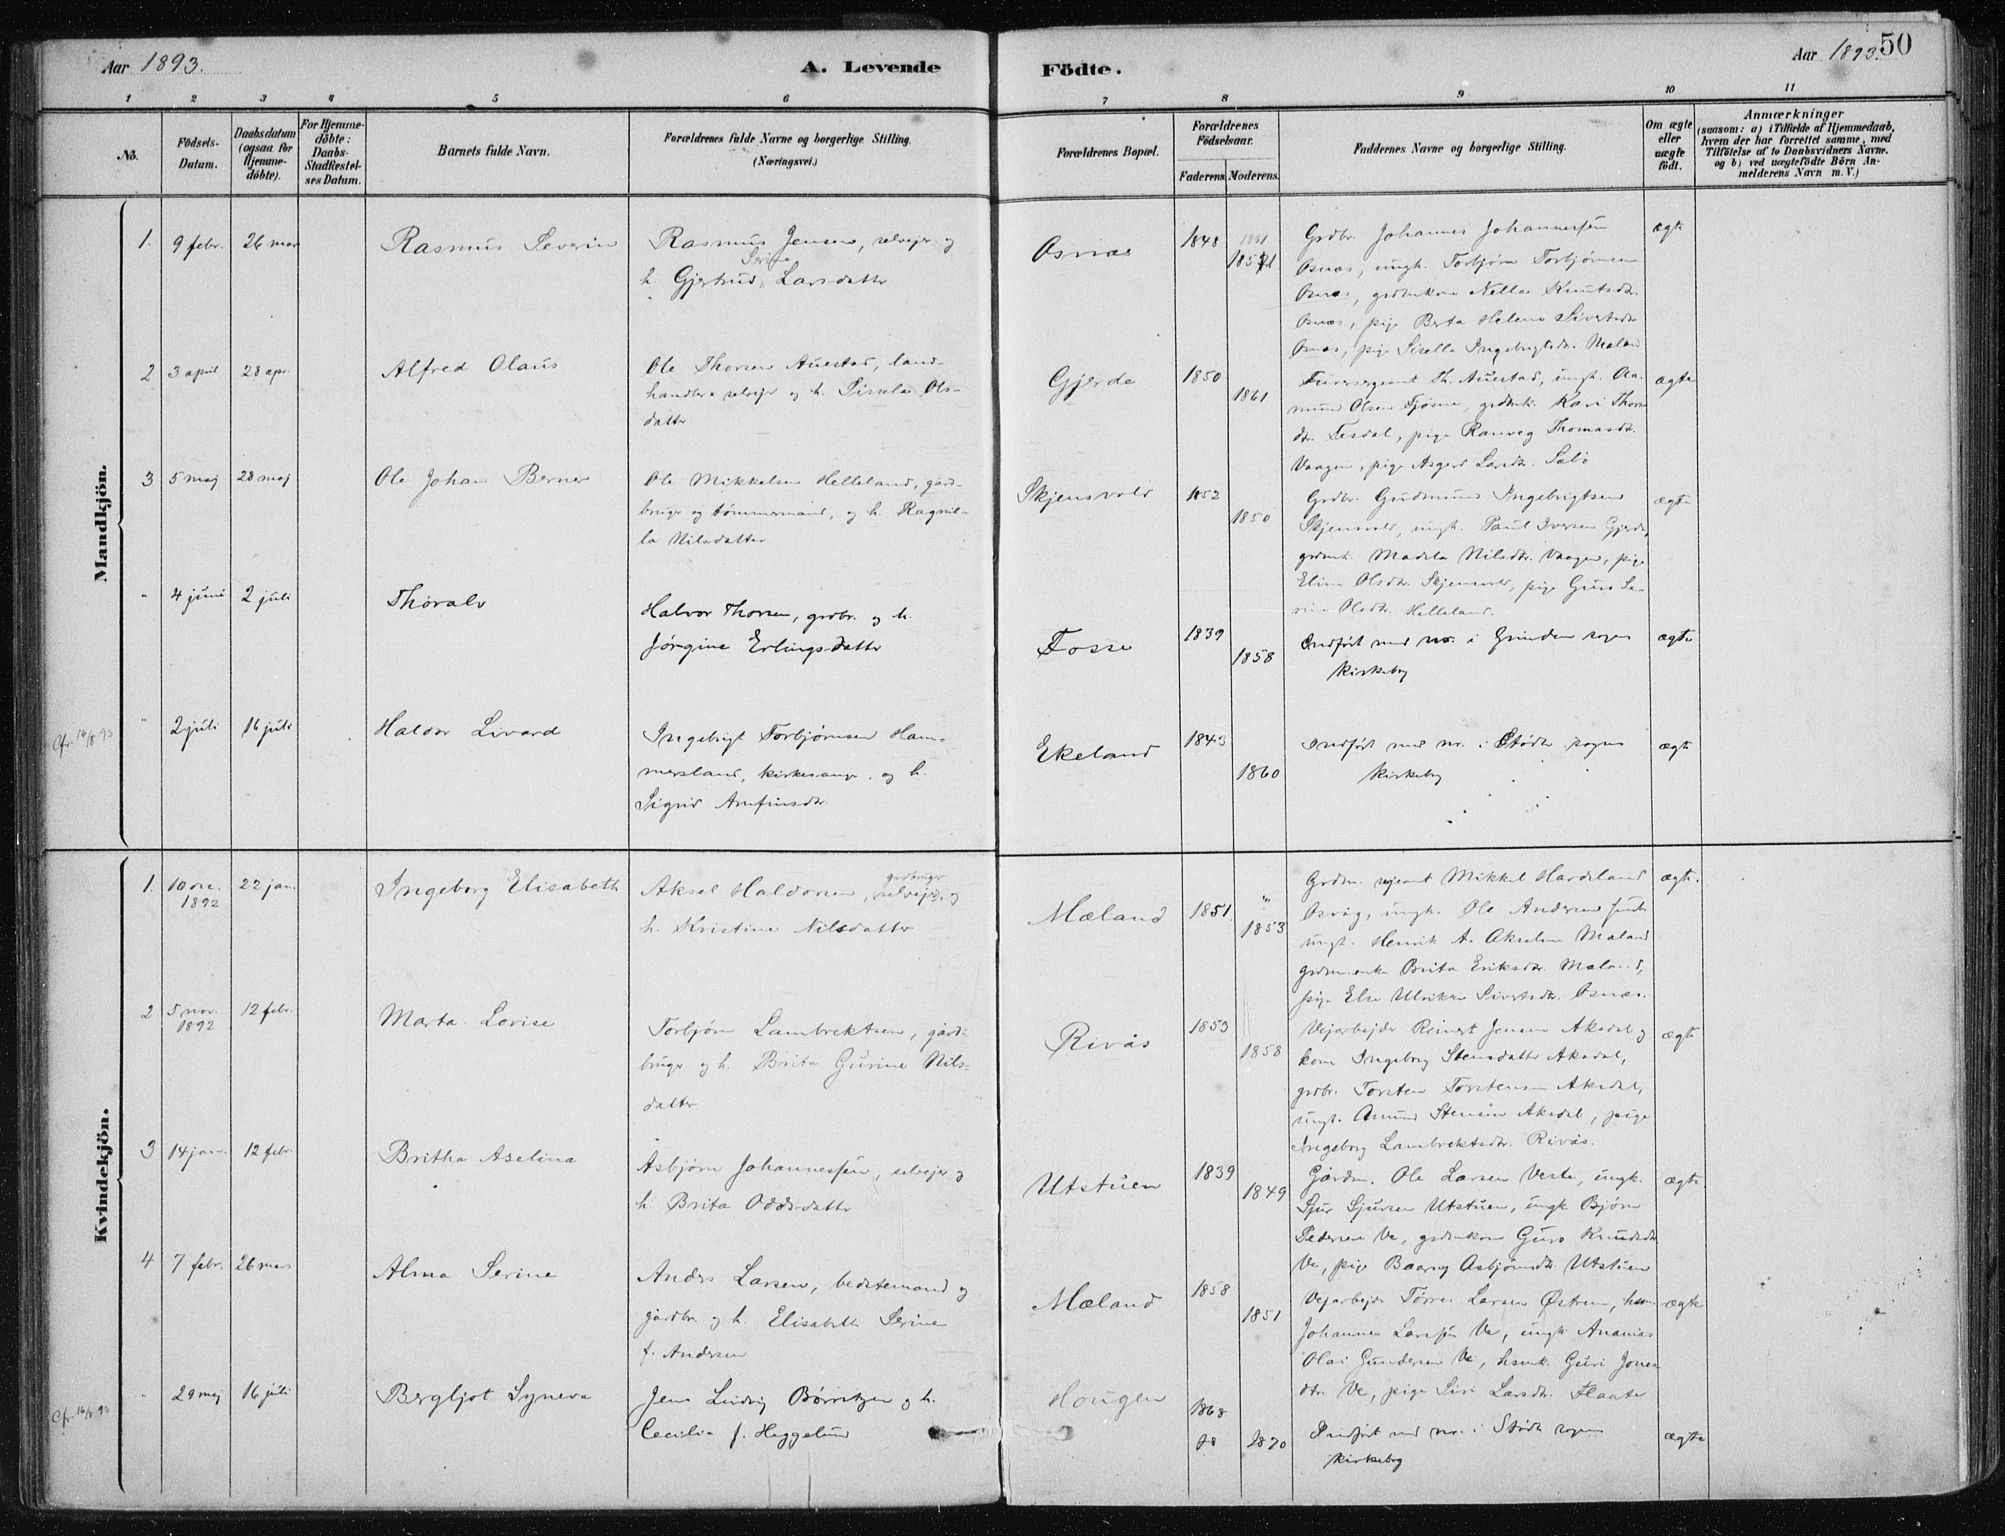 Aar 1893.
A. Levende
Födte.
Aar 1893.
50
1 2 3 4 5 6 7 8 9 10 11
No.
Födsels-
Datum.
Daabsdatum
(ogsaa for
Hjemme-
døbte).
For Hjemme-
döbte:
Daabs-
Stadfæstel-
ses Datum.
Barnets fulde Navn.
Forældrenes fulde Navne og borgerlige Stilling.
(Næringsvei.)
Forældrenes Bopæl.
Forældrenes
Födselsaar.
Faderens. Moderens.
Faddernes Navne og borgerlige Stilling.
Om ægte
eller
uægte
födt.
Anmærkninger
(saasom: a) i Tilfælde af Hjemmedaab,
hvem der har forrettet samme, med
Tilföielse af to Daabsvidners Navne,
og b) ved uægtefödte Börn An-
melderens Navn m. V.)
Mandkjön.
1. 9 febr. 26 mar
Rasmus Severin
Rasmus Jensen, selvejer og
Serine
h. Gjertrud Larsdatter
Osnæs
1848
Grdbr. Johannes Johannessen
Osnæs, ungk. Torbjørn Torbjørnsen
Osnæs, Nella Knutsdtr.
Osnæs, pige Berta Helene Sivertsdtr
Osnæs, pige Sisella Ingebrigtsdtr. Mæland
ægte
2 3 april 23 apr.
Alfred Olaus
Ole Thorsen Auestad, land-
handler & selvejer og h. Sissela Ols-
datter
Gjerde
1850
1861
Th. Auestad, ungk. Aa-
mund Olsen Tjøsne, Kari Thors
dtr. Tesdal, pige Ranveg Thomasdtr.
Vaagen, pige Asgerd Larsdtr. Sæbø
ægte
3 5 maj 28 maj
Ole Johan Berner
Ole Mikkelsen Helleland, gård-
bruger og tømmermand, og h. Ragnil-
la Nilsdatter
Skjensvold
1852
1850
Grdbr. Gudmund Ingebrigtsen
Skjensvold, ungk. Paul Iversen Gjerde,
Madela Nilsdtr. Vaagen, pige
Eline Olsdtr. Skjensvold, pige Guro Se-
rine Olsdtr. Helleland.
ægte
" 4 juni 2 juli
Thoralv
Halvor Thorsen, grdbr. og h.
Jørgine Erlingsdatter
Fosse
1839
1858
Indført med no. i Grinden sogns
kirkebog
ægte
Cfr. 16/8 93
" 2 juli 16 juli
Haldor Livard
Ingebrigt Torbjørnsen Ham-
mersland, kirkesanger, og h.
Sigrid Arnfinsdtr.
Ekeland
1843
1860
Indført med no. i Stødle sogns
kirkebog
ægte
Kvindekjön.
1. 10 22 jan.
1892
Ingeborg Elisabeth
Aksel Haldorsen, selvejer, og
gårdbruger
h. Kristine Nilsdatter
Mæland
1851.
1853
Mikkel
Osvåg, ungk. Ole Andersen
ungk. Henrik A. Akselsen Mæland
Brita Eriksdtr. Mæland,
pige Else Ulrikke Sivertsdtr. Osnæs.
ægte.
2 5 nov. 12 febr.
1892
Marta Lovise
Torbjørn Lambrektsen, gård-
bruger og h. Brita Gurine Nils-
datter
Rivås
1853
1858
Vejarbejder Reinert Jensen Aksdal og
kone Ingeborg Stensdatter Aksdal,
grdbr. Torsten Torstensen Aksdal,
ungk. Amund Stensen Aksdal, pige
Ingeborg Lambrektsdtr. Rivås.
ægte
3 14 jan. 12 febr.
Britha Aselina
Asbjørn Johannessen, selvejer og
h Brita Oddsdatter
Utstuen
1839
1849
Gårdm. Ole Larsen Veste, ungk.
Sjur Sjursen Utstuen, ungk Bjørn
Pedersen Ve, Guro Knudsdtr.
Ve, pige Asbjørnsdtr. Utstuen
ægte
4 7 febr. 26 mars
Alma Serine
Anders Larsen, bedstemand og
gårdbr. og h. Elisabeth Serine
f. Andersen
Mæland
1858
1851
Vejarbejder Tørres Larsen Østrem,
Johannes Larssen Ve, ungk. Ananias
Olai Gundersen Ve, Guri Jones
dtr. Ve, pige Siri Larsdtr. Flaate
ægte
Cfr. 16/8 93
" 29 maj 16 juli
Bergljot Syneva
Jens Ludvig Børretzen og h.
Cecilie f. Heggelund
Hougen
1868
1870
Indført med no. i Stødle sogns
kirkebog
ægte